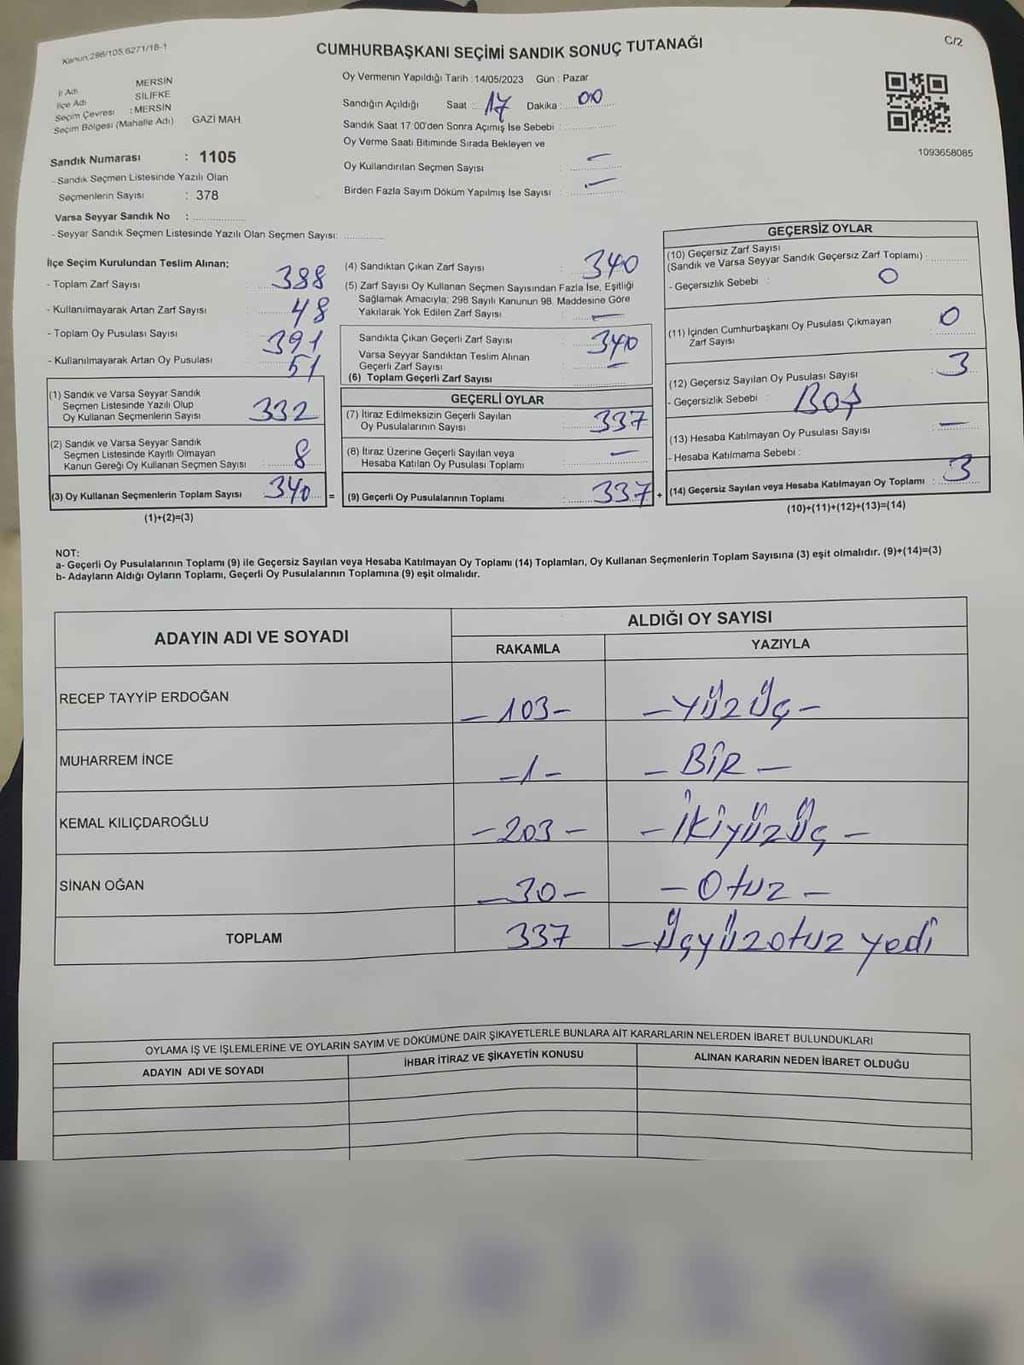 Kanun:298/105,6271/18-1
CUMHURBAŞKANI SEÇİMİ SANDIK SONUÇ TUTANAĞI
C/2
İl Adı MERSİN
İlçe Adı SİLİFKE
Seçim Çevresi : MERSİN
Seçim Bölgesi (Mahalle Adı) GAZİ MAH
Sandık Numarası : 1105
- Sandık Seçmen Listesinde Yazılı Olan
Seçmenlerin Sayısı : 378
Varsa Seyyar Sandık No :
- Seyyar Sandık Seçmen Listesinde Yazılı Olan Seçmen Sayısı:
Oy Vermenin Yapıldığı Tarih :14/05/2023 Gün : Pazar
Sandığın Açıldığı Saat : 17 Dakika : 00
Sandık Saat 17:00'den Sonra Açılmış İse Sebebi :
Oy Verme Saati Bitiminde Sırada Bekleyen ve
Oy Kullandırılan Seçmen Sayısı : —
Birden Fazla Sayım Döküm Yapılmış İse Sayısı : —
1093658085
İlçe Seçim Kurulundan Teslim Alınan;
- Toplam Zarf Sayısı : 388
- Kullanılmayarak Artan Zarf Sayısı : 48
- Toplam Oy Pusulası Sayısı : 391
- Kullanılmayarak Artan Oy Pusulası : 51
(1) Sandık ve Varsa Seyyar Sandık
Seçmen Listesinde Yazılı Olup
Oy Kullanan Seçmenlerin Sayısı : 332
(2) Sandık ve Varsa Seyyar Sandık
Seçmen Listesinde Kayıtlı Olmayan
Kanun Gereği Oy Kullanan Seçmen Sayısı : 8
(3) Oy Kullanan Seçmenlerin Toplam Sayısı : 340 =
(1)+(2)=(3)
(4) Sandıktan Çıkan Zarf Sayısı : 340
(5) Zarf Sayısı Oy Kullanan Seçmen Sayısından Fazla İse, Eşitliği
Sağlamak Amacıyla; 298 Sayılı Kanunun 98. Maddesine Göre
Yakılarak Yok Edilen Zarf Sayısı : —
Sandıkta Çıkan Geçerli Zarf Sayısı : 340
Varsa Seyyar Sandıktan Teslim Alınan
Geçerli Zarf Sayısı : —
(6) Toplam Geçerli Zarf Sayısı
GEÇERLİ OYLAR
(7) İtiraz Edilmeksizin Geçerli Sayılan
Oy Pusulalarının Sayısı : 337
(8) İtiraz Üzerine Geçerli Sayılan veya
Hesaba Katılan Oy Pusulası Toplamı : —
(9) Geçerli Oy Pusulalarının Toplamı : 337 +
GEÇERSİZ OYLAR
(10) Geçersiz Zarf Sayısı
(Sandık ve Varsa Seyyar Sandık Geçersiz Zarf Toplamı) :
- Geçersizlik Sebebi : 0
(11) İçinden Cumhurbaşkanı Oy Pusulası Çıkmayan
Zarf Sayısı : 0
(12) Geçersiz Sayılan Oy Pusulası Sayısı : 3
- Geçersizlik Sebebi : BOŞ
(13) Hesaba Katılmayan Oy Pusulası Sayısı : —
- Hesaba Katılmama Sebebi :
(14) Geçersiz Sayılan veya Hesaba Katılmayan Oy Toplamı : 3
(10)+(11)+(12)+(13)=(14)
NOT:
a- Geçerli Oy Pusulalarının Toplamı (9) ile Geçersiz Sayılan veya Hesaba Katılmayan Oy Toplamı (14) Toplamları, Oy Kullanan Seçmenlerin Toplam Sayısına (3) eşit olmalıdır. (9)+(14)=(3)
b- Adayların Aldığı Oyların Toplamı, Geçerli Oy Pusulalarının Toplamına (9) eşit olmalıdır.
ADAYIN ADI VE SOYADI
ALDIĞI OY SAYISI
RAKAMLA YAZIYLA
RECEP TAYYİP ERDOĞAN -103- -Yüz Üç-
MUHARREM İNCE -1- - BİR -
KEMAL KILIÇDAROĞLU -203- - İkiyüz Üç -
SİNAN OĞAN -30- - Otuz -
TOPLAM 337 -Üçyüzotuz yedi
OYLAMA İŞ VE İŞLEMLERİNE VE OYLARIN SAYIM VE DÖKÜMÜNE DAİR ŞİKAYETLERLE BUNLARA AİT KARARLARIN NELERDEN İBARET BULUNDUKLARI
ADAYIN ADI VE SOYADI İHBAR İTİRAZ VE ŞİKAYETİN KONUSU ALINAN KARARIN NEDEN İBARET OLDUĞU